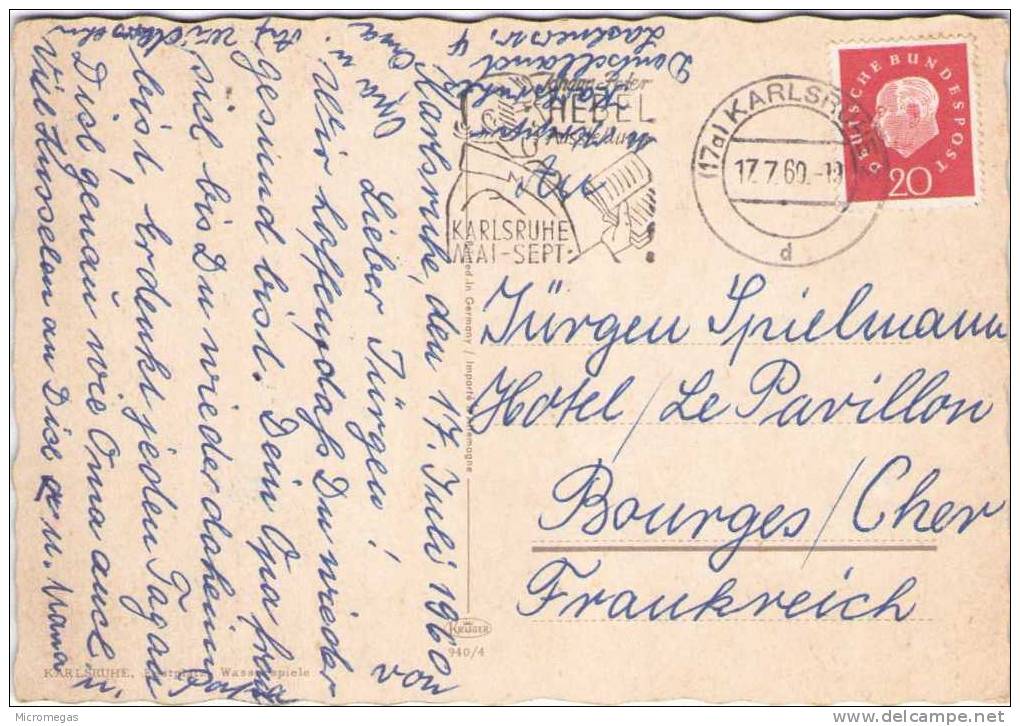 Karlsruhe, den 17. Juli 1960
Lieber Jürgen!
Wir hoffen, daß Du wieder
gesund bist. Dein Opa freut
sich bis Du wieder daheim
bist, er denkt jeden Tag an
Dich genau wie Oma auch
Viele Grüße an Dich u. Mama
von
Opa u. Oma.
Auf
Karlsruhe
Deutschland
Johann Peter
HEBEL
Ausstellung
KARLSRUHE
MAI-SEPT.
(17a) KARLSRUHE
17.7.60.-19
d
DEUTSCHE BUNDESPOST
20
Jürgen Spielmann
Hotel/Le Pavillon
Bourges/Cher
Frankreich
Printed in Germany / Importé d'Allemagne
KRÜGER
940/4
KARLSRUHE, Festplatz, Wasserspiele
Micromegas
www.delcampe.net